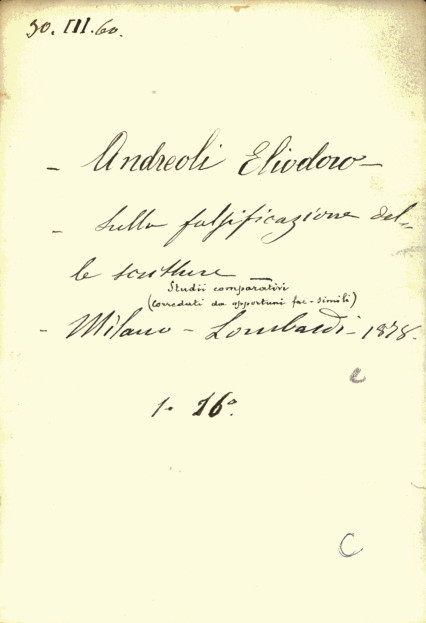 30. III. 60.
- Andreoli Eliodoro -
- Sulla falsificazione del-
le scritture -
Studii comparativi
(Correduti da opportuni fac-simili)
- Milano - Lombardi - 1878.
e
1. 16°.
C